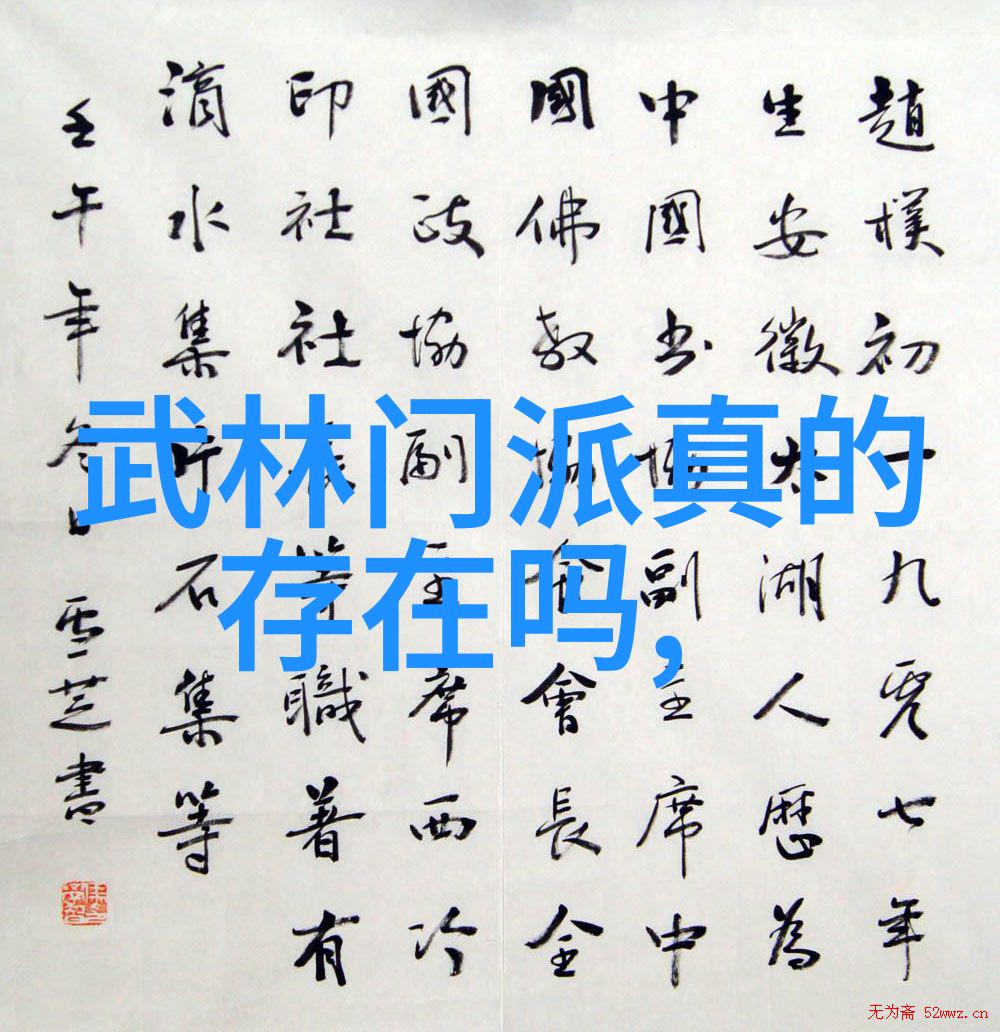 趙樸初一九零七年
生安徽太湖人歷為
中國書協副主席中
國佛教協会會長全
國政協副主席西泠
印社社長等職著有
滴水集片石集等
壬午年冬日 雪芝書
武林门派真的
存在吗,
无为斋 52wwz.cn